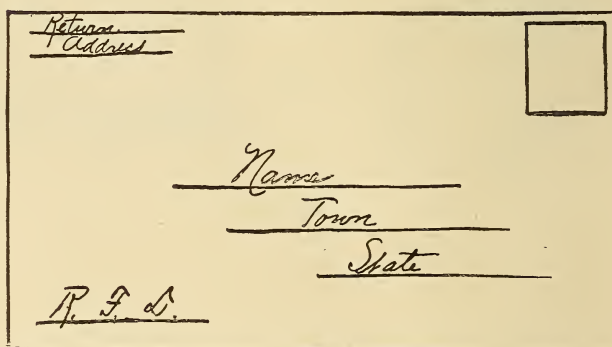 Return
Address
Name
Town
State
R. F. D.